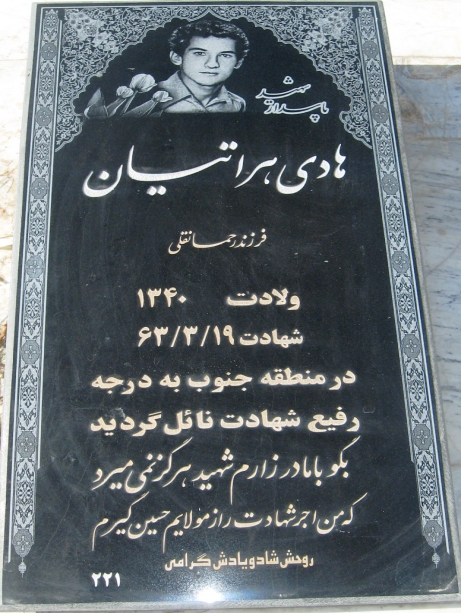 شهید
پاسدار
هادی هراتیان
فرزند رحمانقلی
ولادت ۱۳۴۰
شهادت ۶۳/۳/۱۹
در منطقه جنوب به درجه
رفیع شهادت نائل گردید
بگو با مادر زارم شهید هرگز نمی میرد
که من اجر شهادت را ز مولایم حسین گیرم
روحش شاد و یادش گرامی
۲۲۱